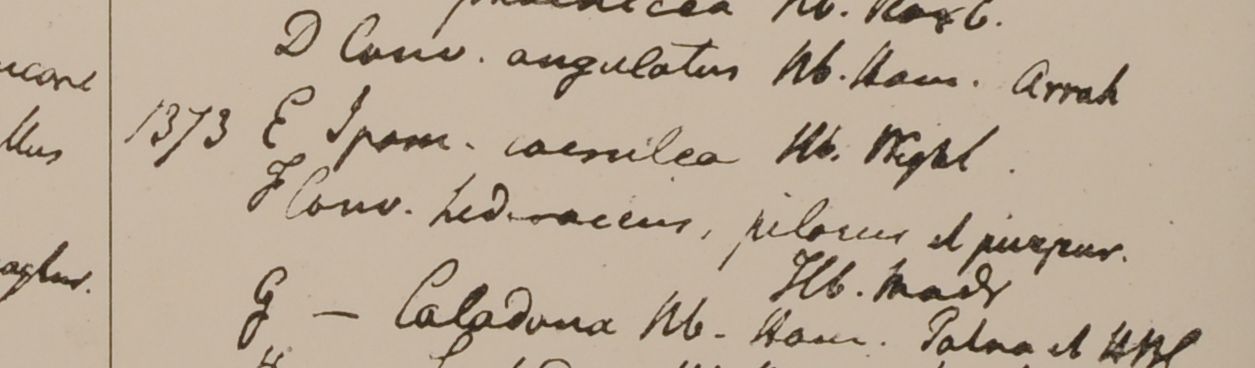 phoenicea Hb. Roxb.
D Conv. angulatus Hb. Ham. Arrah
1373 E Ipom. coerulea Hb. Wight.
F Conv. hederaceus, pilosus et purpur.
Hb. Madr
G — Caladona Hb. Ham. Patna et HBC